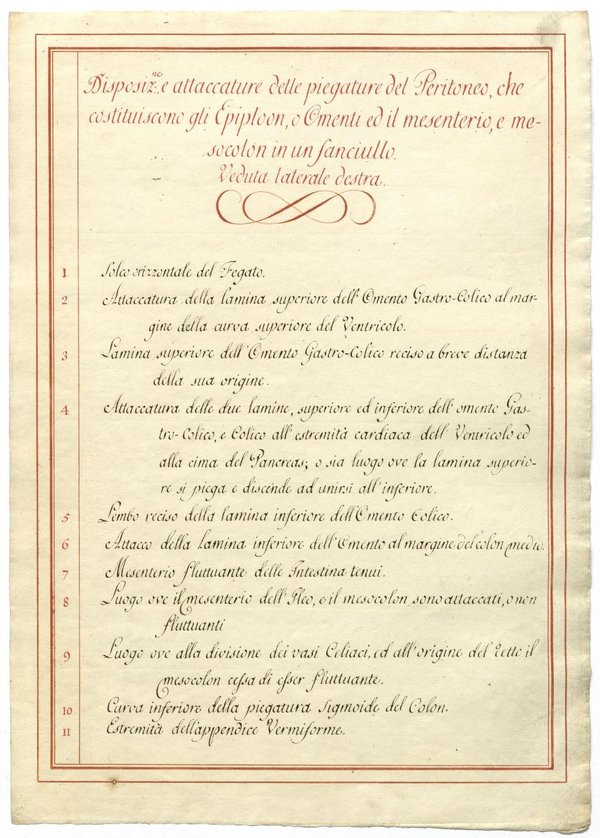 Disposiz.ne, e attaccature delle piegature del Peritoneo, che
costituiscono gli Epiploon, o Omenti ed il mesenterio, e me-
socolon in un fanciullo.
Veduta laterale destra.
1 Solco orizzontale del Fegato.
2 Attaccatura della lamina superiore dell'Omento Gastro-Colico al mar-
gine della curva superiore del Ventricolo.
3 Lamina superiore dell'Omento Gastro-Colico reciso a breve distanza
della sua origine.
4 Attaccatura delle due lamine, superiore ed inferiore dell'omento Gas-
tro-Colico, e Colico all'estremità cardiaca dell'Ventricolo ed
alla cima del Pancreas; o sia luogo ove la lamina superio-
re si piega e discende ad unirsi all'inferiore.
5 Lembo reciso della lamina inferiore dell'Omento Colico.
6 Attacco della lamina inferiore dell'Omento al margine del colon medio.
7 Mesenterio fluttuante delle Intestina tenui.
8 Luogo ove il mesenterio dell'Ileo, e il mesocolon sono attaccati, o non
fluttuanti
9 Luogo ove alla divisione dei vasi Celiaci, ed all'origine del Retto il
mesocolon cessa di esser fluttuante.
10 Curva inferiore della piegatura Sigmoide del Colon.
11 Estremità dell'appendice Vermiforme.